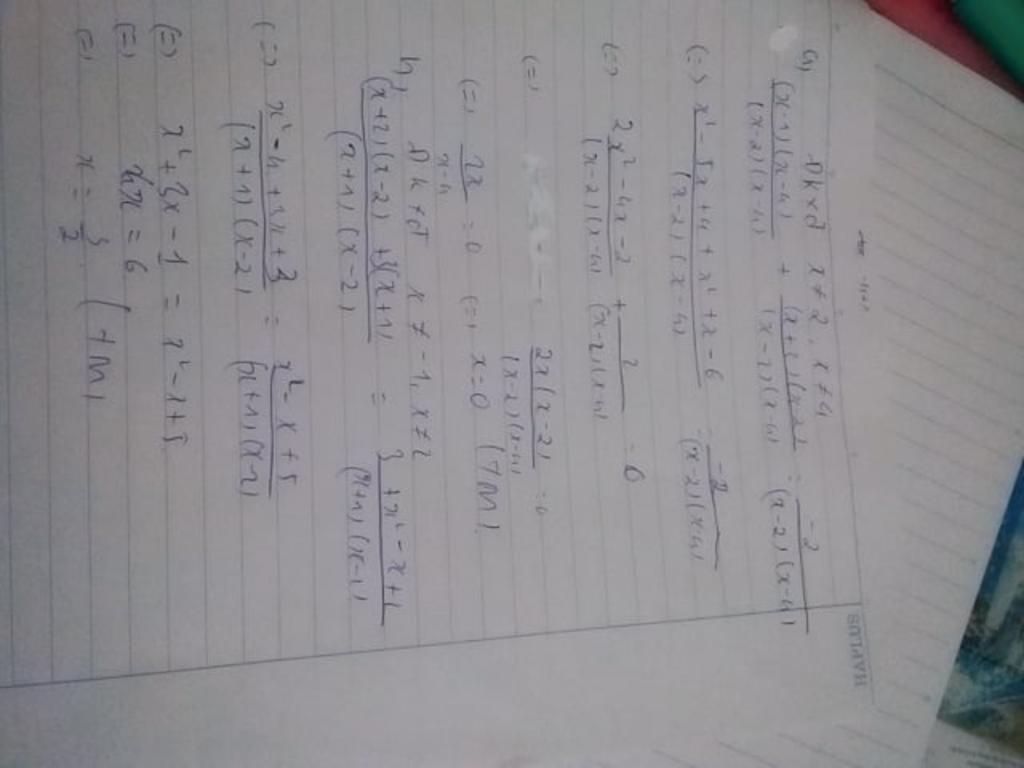 a, ĐKXĐ x ≠ 2, x ≠ 4
(x-1)(x-4)/(x-2)(x-4) + (x+3)(x-2)/(x-2)(x-4) = -2/(x-2)(x-4)
(=) x² - 5x + 4 + x² + x - 6/(x-2)(x-4) = -2/(x-2)(x-4)
(=) 2x² - 4x - 2/(x-2)(x-4) + 2/(x-2)(x-4) = 0
(=) 2x(x-2)/(x-2)(x-4) = 0
(=) 2x/x-4 = 0 (=) x = 0 (TM)
b, ĐKXĐ x ≠ -1, x ≠ 2
(x+2)(x-2) + 3(x+1)/(x+1)(x-2) = 3 + x² - x + 2/(x+1)(x-2)
(=) x² - 4 + 3x + 3/(x+1)(x-2) = x² - x + 5/(x+1)(x-2)
(=) x² + 3x - 1 = x² - x + 5
(=) 4x = 6
(=) x = 3/2 (TM)
HAPLUS